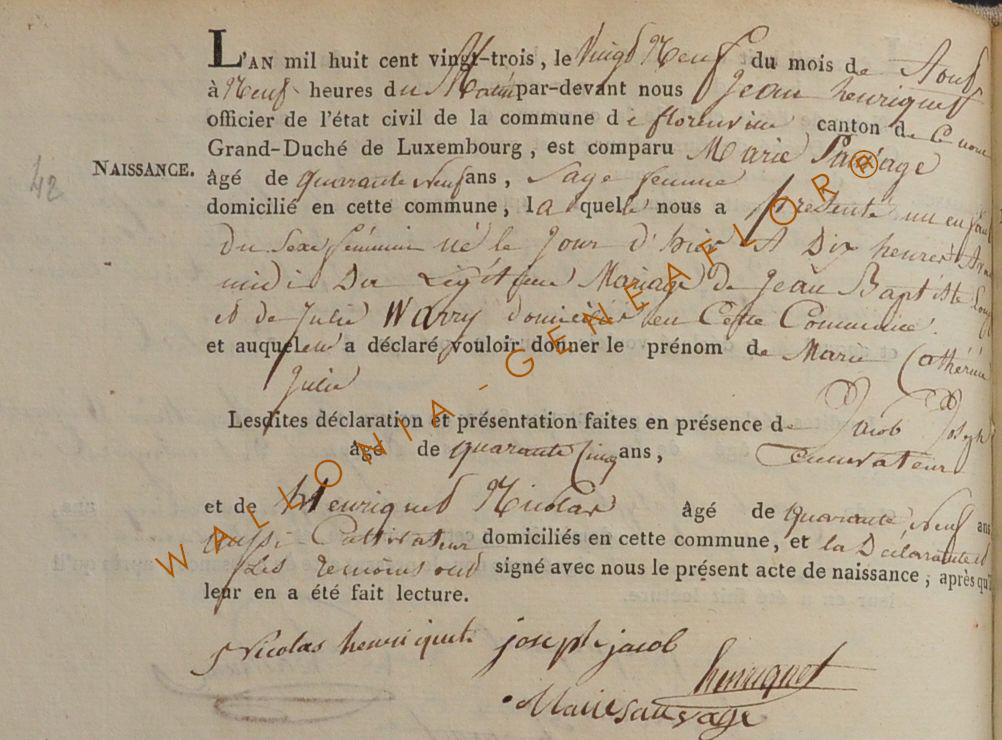 L'AN mil huit cent vingt-trois, le Vingt Neuf du mois de Aout
à Neuf heures du Matin par-devant nous Jean henriquet
officier de l'état civil de la commune de florenville canton de
Grand-Duché de Luxembourg, est comparu Marie
42
NAISSANCE.
âgé de quarante Neuf ans, Sage femme
domicilié en cette commune, la quelle nous a presenté un enfant
Du Sexe féminin né le Jour d'hier A Dix heures Avant
midi Du Légitime Mariage De Jean Baptiste
et de Julie Warry domiciliés en Cette Commune.
et auquel a déclaré vouloir donner le prénom de Marie Cathérine
Julie
Lesdites déclaration et présentation faites en présence de Jacob Joseph
âgé de quarante Cinq ans,
et de henriquet Nicolas âgé de quarante Neuf ans
aussi Cultivateur domiciliés en cette commune, et la Déclarante et
Les temoins ont signé avec nous le présent acte de naissance, après qu'il
leur en a été fait lecture.
Nicolas henriquet joseph jacob
henriquet
Marie sauvage
WALLONIA-GENEAFLOR®